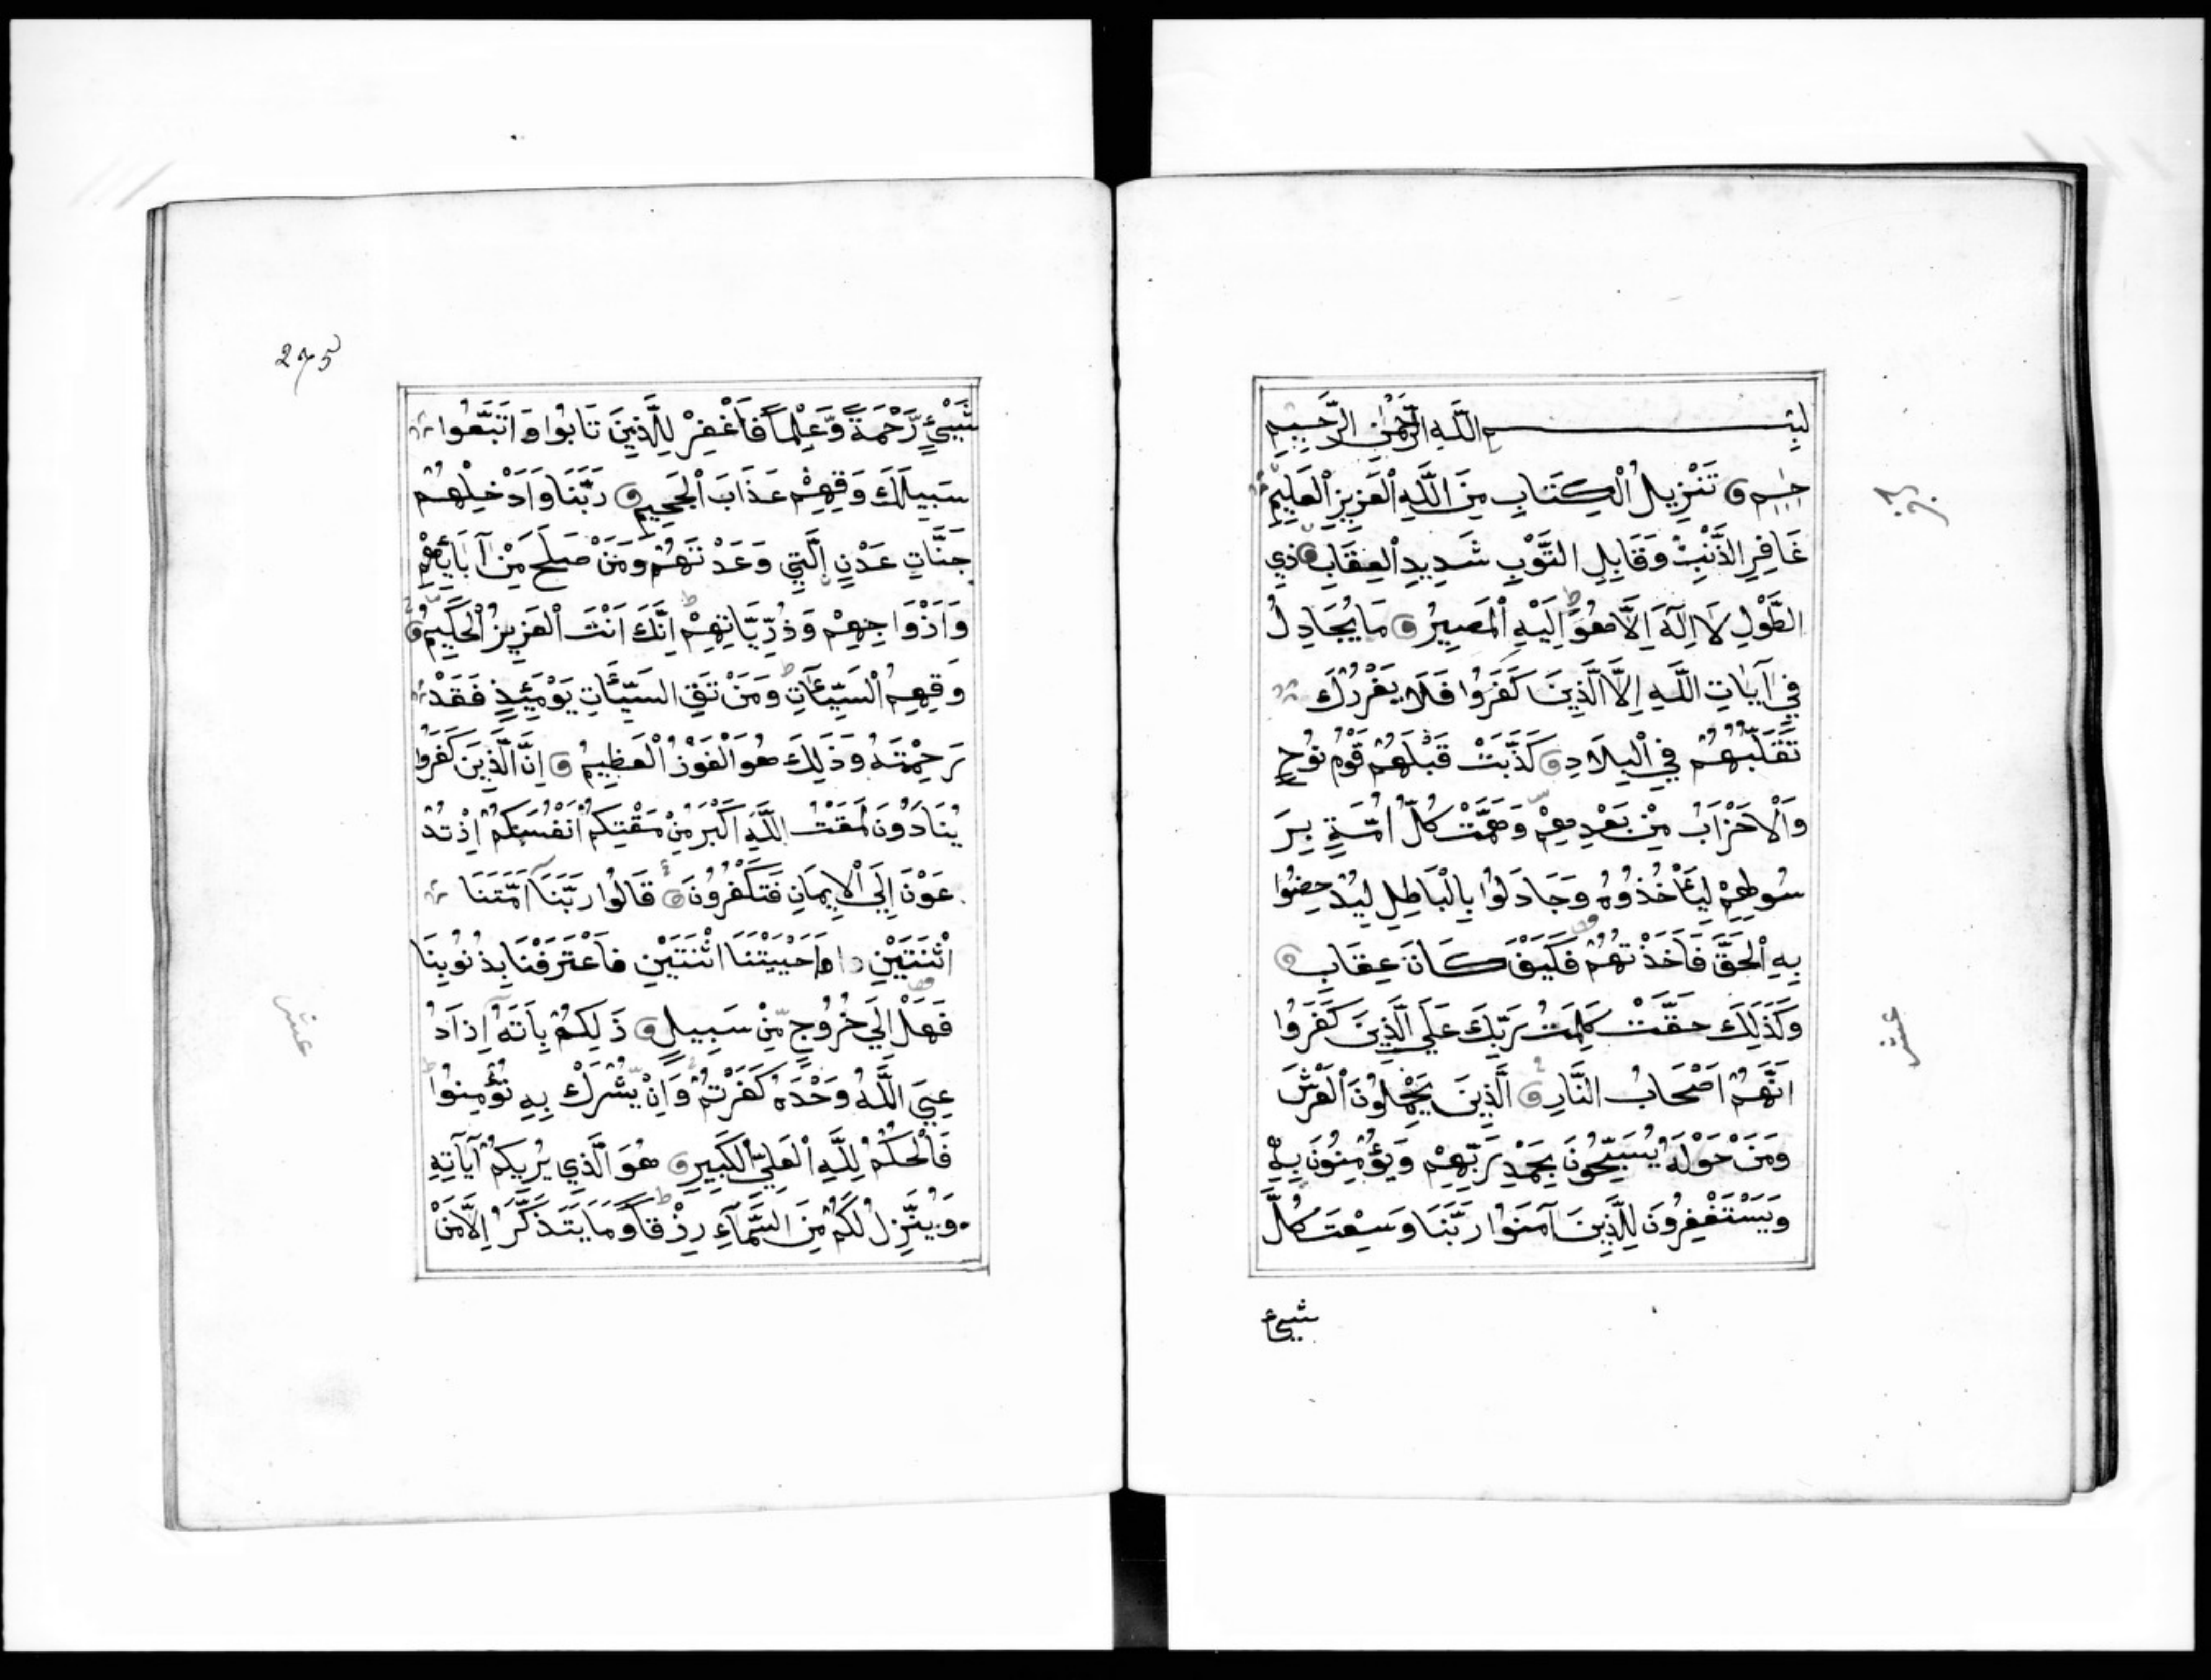 بِسْمِ اللَّهِ الرَّحْمٰنِ الرَّحِيمِ
حٰم تَنْزِيلُ الْكِتَابِ مِنَ اللَّهِ الْعَزِيزِ الْعَلِيمِ
غَافِرِ الذَّنْبِ وَقَابِلِ التَّوْبِ شَدِيدِ الْعِقَابِ ذِي
الطَّوْلِ لَا اِلَهَ اِلَّا هُوَ اِلَيْهِ الْمَصِيرُ مَا يُجَادِلُ
فِي آيَاتِ اللَّهِ اِلَّا الَّذِينَ كَفَرُوا فَلَا يَغْرُرْكَ
تَقَلُّبُهُمْ فِي الْبِلَادِ كَذَّبَتْ قَبْلَهُمْ قَوْمُ نُوحٍ
وَالْاَحْزَابُ مِنْ بَعْدِهِمْ وَهَمَّتْ كُلُّ اُمَّةٍ بِرَ
سُولِهِمْ لِيَأْخُذُوهُ وَجَادَلُوا بِالْبَاطِلِ لِيُدْحِضُوا
بِهِ الْحَقَّ فَاَخَذْتُهُمْ فَكَيْفَ كَانَ عِقَابِ
وَكَذَلِكَ حَقَّتْ كَلِمَتُ رَبِّكَ عَلَى الَّذِينَ كَفَرُوا
اَنَّهُمْ اَصْحَابُ النَّارِ الَّذِينَ يَحْمِلُونَ الْعَرْشَ
وَمَنْ حَوْلَهُ يُسَبِّحُونَ بِحَمْدِ رَبِّهِمْ وَيُؤْمِنُونَ بِهِ
وَيَسْتَغْفِرُونَ لِلَّذِينَ آمَنُوا رَبَّنَا وَسِعْتَ كُلَّ
شيئ
عشر
275
شَيْئٍ رَّحْمَةً وَّعِلْمًا فَاغْفِرْ لِلَّذِينَ تَابُوا وَاتَّبَعُوا
سَبِيلَكَ وَقِهِمْ عَذَابَ الْجَحِيمِ رَبَّنَا وَاَدْخِلْهُمْ
جَنَّاتِ عَدْنٍ الَّتِي وَعَدْتَهُمْ وَمَنْ صَلَحَ مِنْ آبَائِهِمْ
وَاَزْوَاجِهِمْ وَذُرِّيَّاتِهِمْ اِنَّكَ اَنْتَ الْعَزِيزُ الْحَكِيمُ
وَقِهِمُ السَّيِّئَاتِ وَمَنْ تَقِ السَّيِّئَاتِ يَوْمَئِذٍ فَقَدْ
رَحِمْتَهُ وَذَلِكَ هُوَ الْفَوْزُ الْعَظِيمُ اِنَّ الَّذِينَ كَفَرُوا
يُنَادَوْنَ لَمَقْتُ اللَّهِ اَكْبَرُ مِنْ مَقْتِكُمْ اَنْفُسَكُمْ اِذْ تُدْ
عَوْنَ اِلَى الْاِيمَانِ فَتَكْفُرُونَ قَالُوا رَبَّنَا اَمَتَّنَا
اثْنَتَيْنِ وَاَحْيَيْتَنَا اثْنَتَيْنِ فَاعْتَرَفْنَا بِذُنُوبِنَا
فَهَلْ اِلَى خُرُوجٍ مِنْ سَبِيلٍ ذَلِكُمْ بِاَنَّهُ اِذَا دُ
عِيَ اللَّهُ وَحْدَهُ كَفَرْتُمْ وَاِنْ يُشْرَكْ بِهِ تُؤْمِنُوا
فَالْحُكْمُ لِلَّهِ الْعَلِيِّ الْكَبِيرِ هُوَ الَّذِي يُرِيكُمْ آيَاتِهِ
وَيُنَزِّلُ لَكُمْ مِنَ السَّمَآءِ رِزْقًا وَمَا يَتَذَكَّرُ اِلَّا مَنْ
عشر